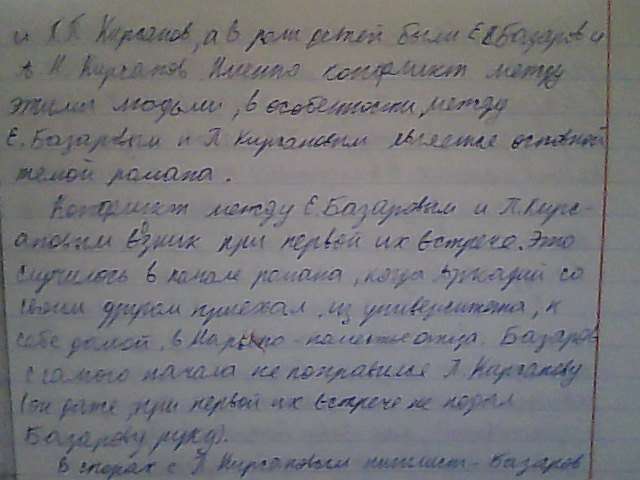 и П.П Кирсанов, а в роли детей были Е.В Базаров и
А Н Кирсанов Именно конфликт между
этими людьми, в особенности, между
Е. Базаровым и П Кирсановым является основной
темой романа.
Конфликт между Е. Базаровым и П. Кирс-
ановым возник при первой их встрече. Это
случилось в начале романа, когда Аркадий со
своим другом приехал из университета, к
себе домой, в Марьино - поместье отца. Базаров
с самого начала не понравился П. Кирсанову
(он даже при первой их встрече не подал
Базарову руку).
В спорах с П Кирсановым нигилист - Базаров